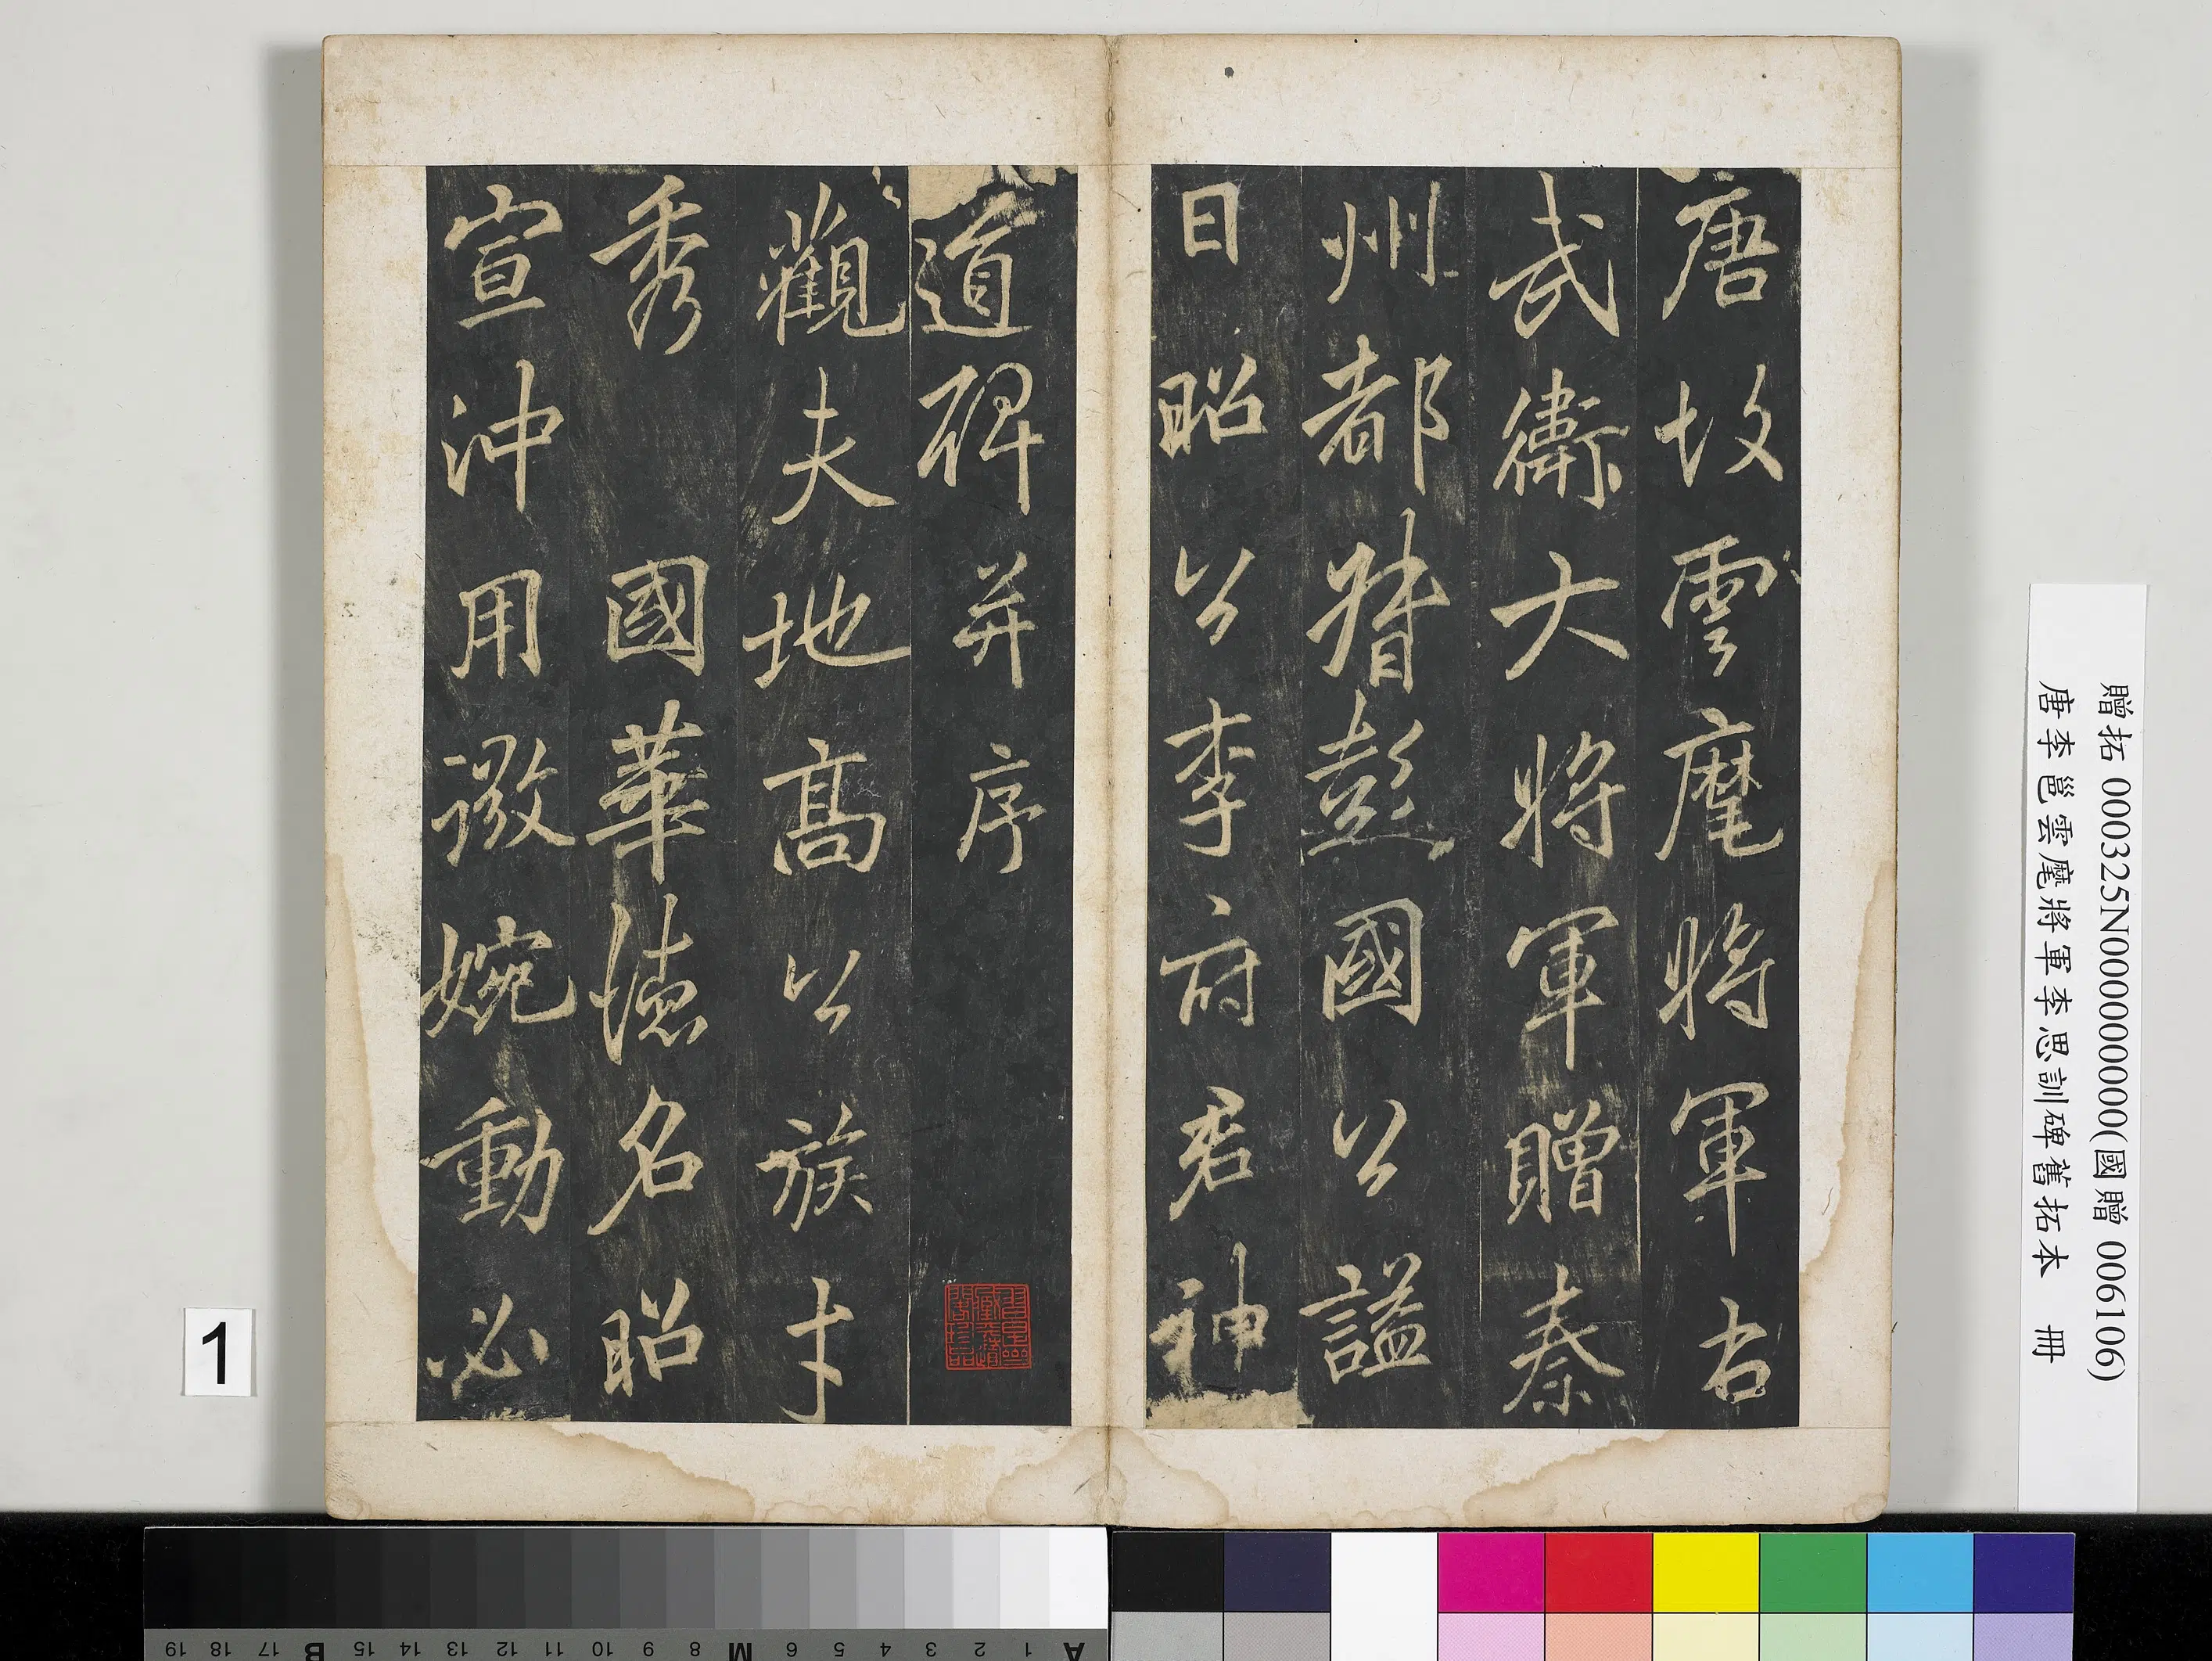 唐故雲麾將軍右
武衛大將軍贈秦
州都督彭國公謚
曰昭公李府君神
道碑并序
觀夫地高公族才
秀 國華德名昭
宣沖用微婉動必
贈拓 000325N000000000(國贈 006106)
唐李邕雲麾將軍李思訓碑舊拓本 冊
1
A 1 2 3 4 5 6 M 8 9 10 11 12 13 14 15 B 17 18 19